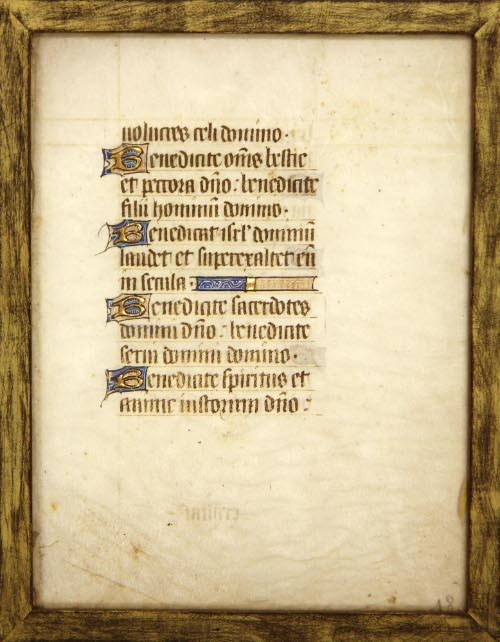 uolucres celi domino.
Benedicite om̄s bestie
et pecora dño: benedicite
filii hominum domino.
Benedicat isrl' dominū
laudet et superexaltet eū
in secula.
Benedicite sacerdotes
domini dño: benedicite
serui domini domino.
Benedicite spiritus et
anime iustorum dño: